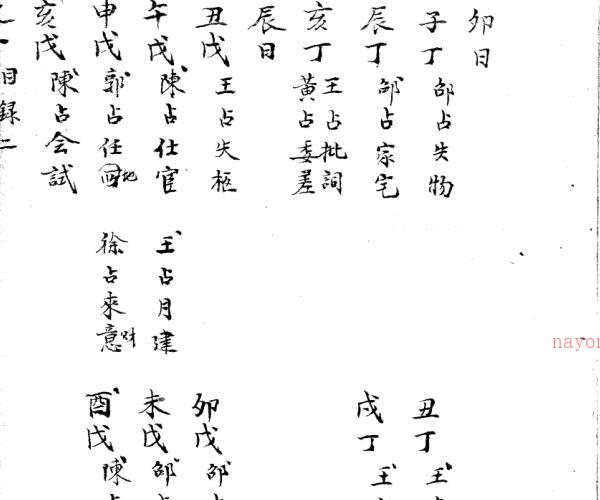 卯日
子丁 邰占失物
丑丁 王占
辰丁 邰占家宅
戌丁 王
亥丁 王占批詞
黄占委差
辰日
丑戊 王占失柩
卯戊 邰占
午戊 陳占仕官 王占月建
未戊 邰占
申戊 郭占任 地 徐占來意 財
酉戊 陳占
亥戊 陳占会試
目録二
nayon